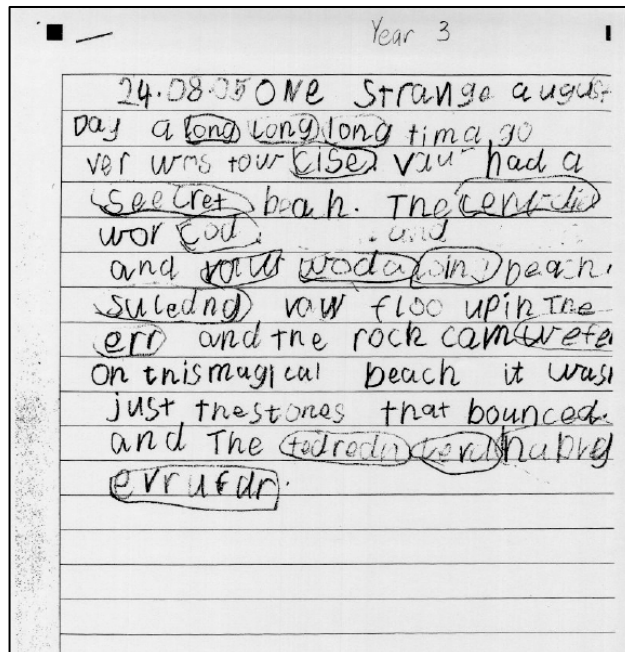 Year 3
24.08.05 ONe Strange augus
Day a long long long tima go
ver wms tow cise had a
Seecret beah. The
wor cod. and
and woda beach.
suledng vaw floo upin The
err and the rock cam
on this magical beach it was
just the stones that bounced.
and The
evrufdr.